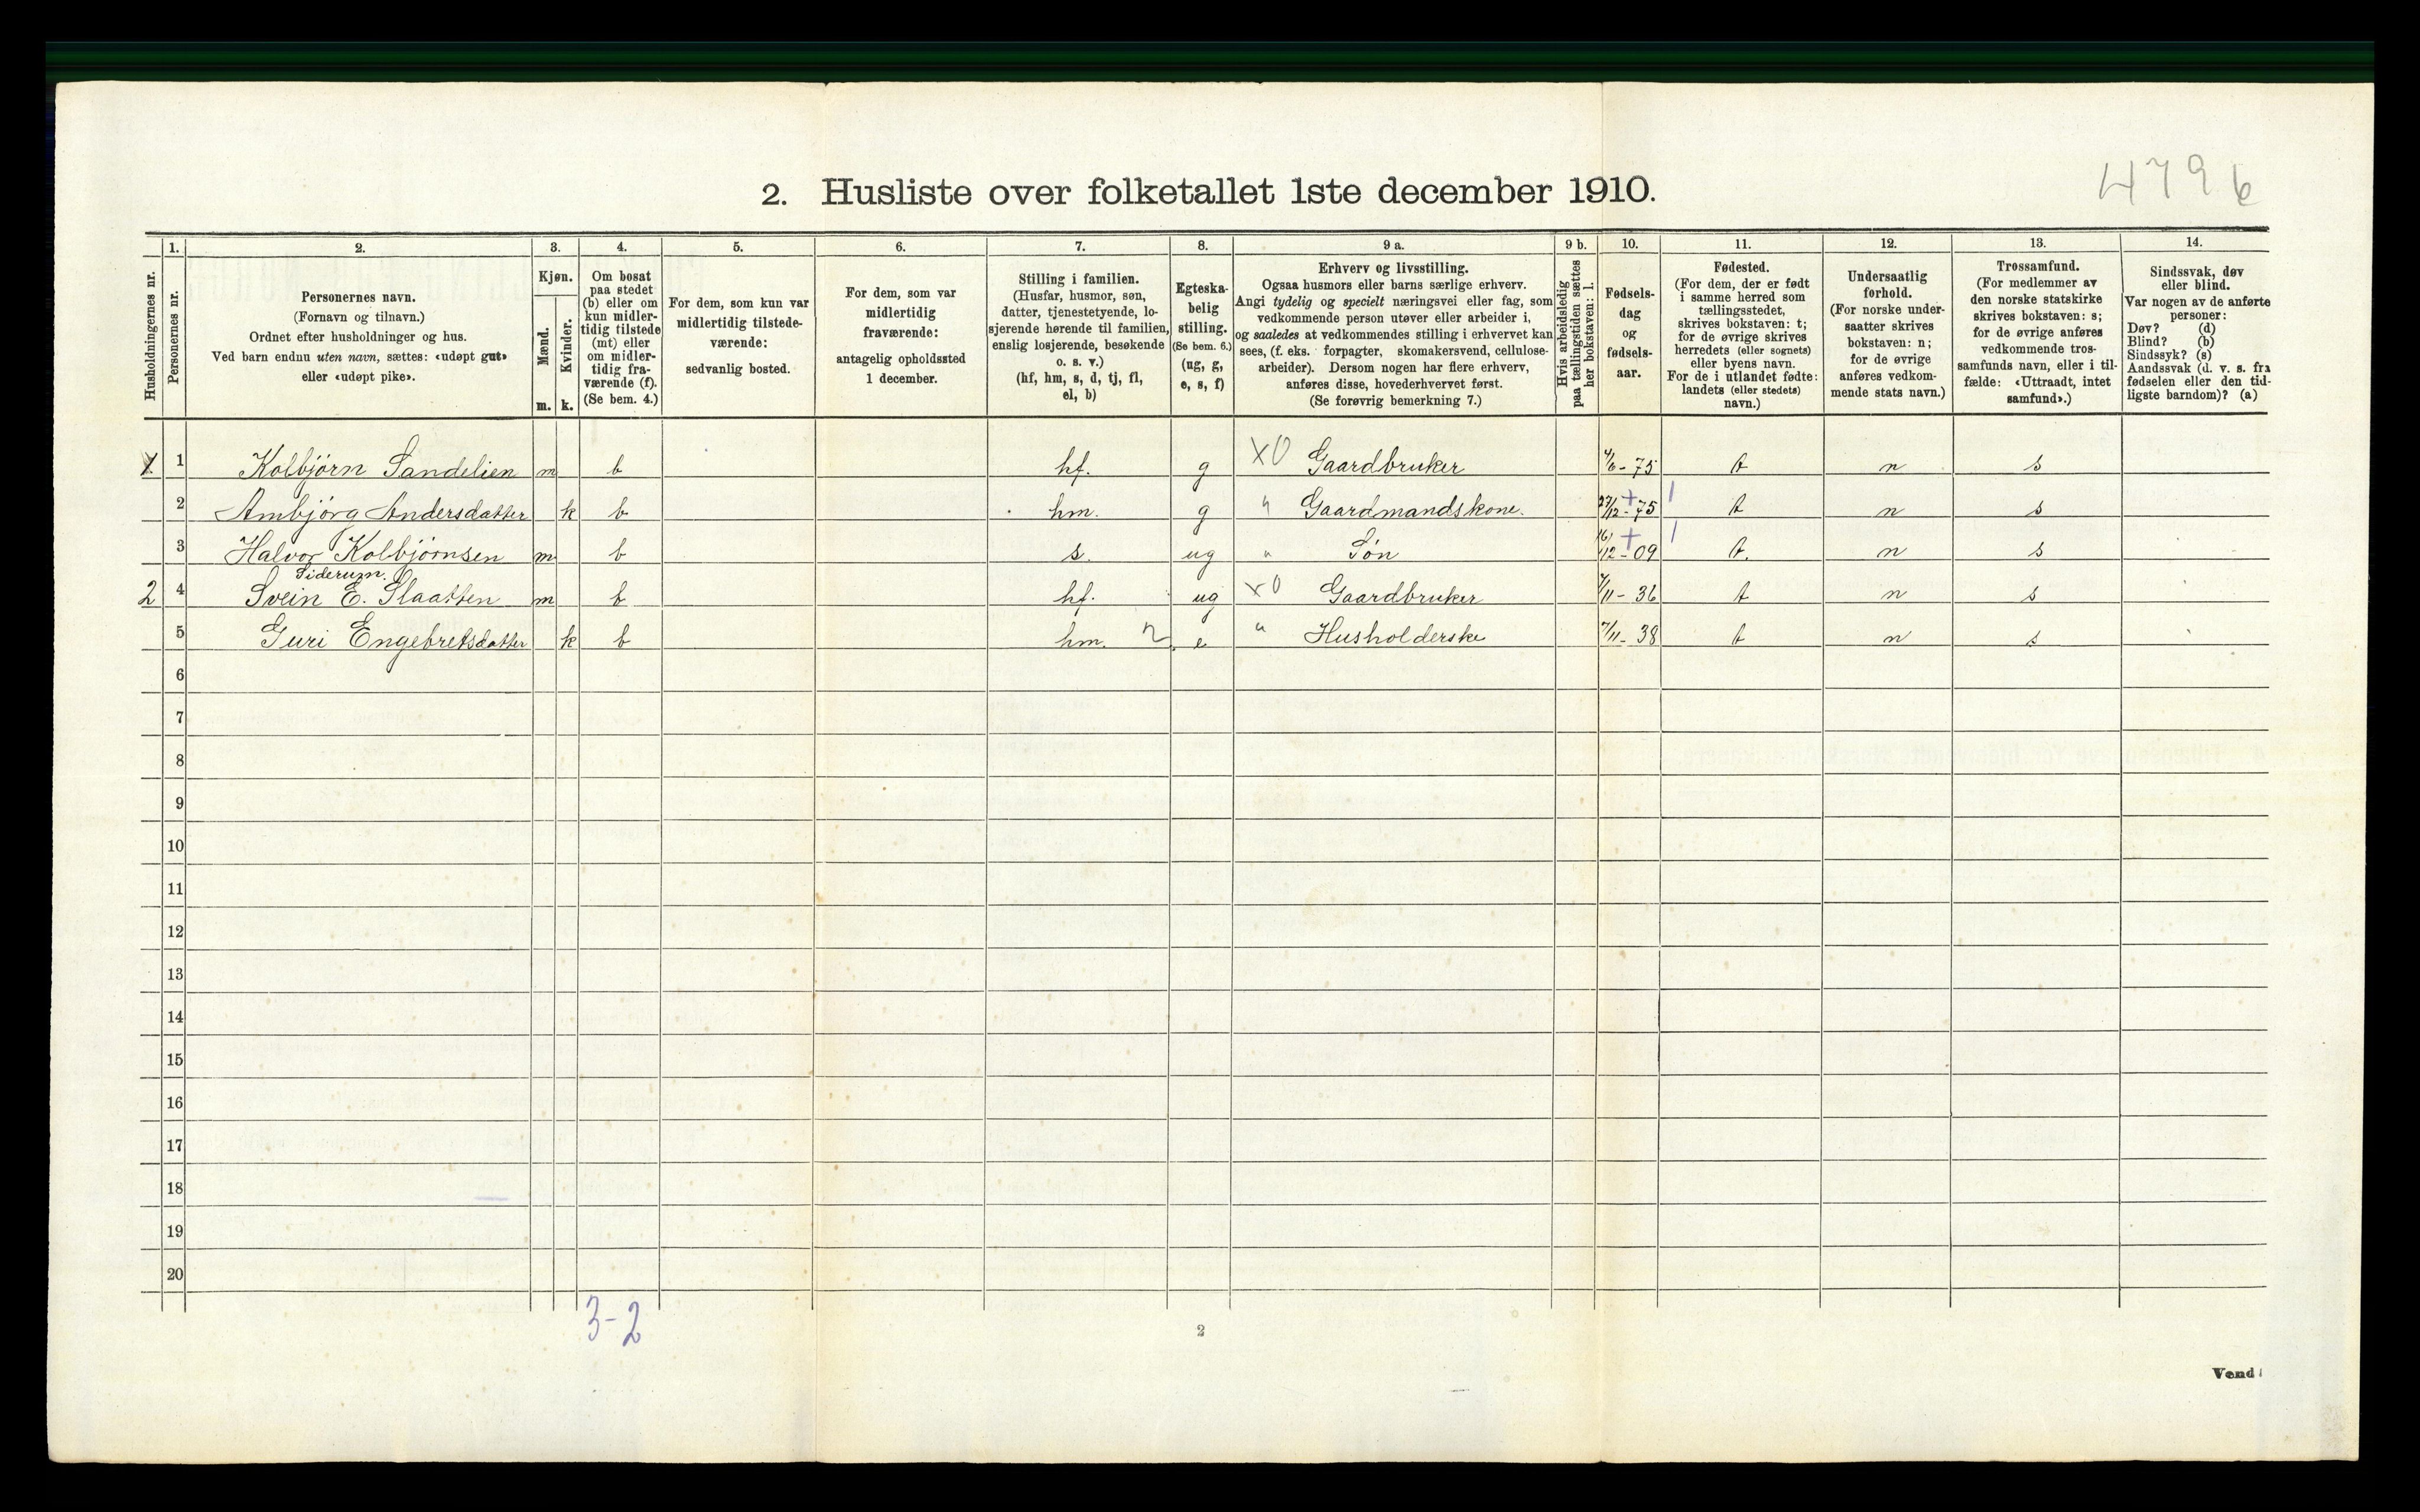 4796
2. Husliste over folketallet 1ste december 1910.
Husholdningernes nr.
1. Personernes nr.
2. Personernes navn.
(Fornavn og tilnavn.)
Ordnet efter husholdninger og hus.
Ved barn endnu uten navn, sættes: «udøpt gut»
eller «udøpt pike».
3. Kjøn.
Mænd. Kvinder.
m. k.
4. Om bosat
paa stedet
(b) eller om
kun midler-
tidig tilstede
(mt) eller
om midler-
tidig fra-
værende (f).
(Se bem. 4.)
5. For dem, som kun var
midlertidig tilstede-
værende:
sedvanlig bosted.
6. For dem, som var
midlertidig
fraværende:
antagelig opholdssted
1 december.
7. Stilling i familien.
(Husfar, husmor, søn,
datter, tjenestetyende, lo-
sjerende hørende til familien,
enslig losjerende, besøkende
o. s. v.)
(hf, hm, s, d, tj, fl,
el, b)
8. Egteska-
belig
stilling.
(Se bem. 6.)
(ug, g,
e, s, f)
9 a. Erhverv og livsstilling.
Ogsaa husmors eller barns særlige erhverv.
Angi tydelig og specielt næringsvei eller fag, som
vedkommende person utøver eller arbeider i,
og saaledes at vedkommendes stilling i erhvervet kan
sees, (f. eks. forpagter, skomakersvend, cellulose-
arbeider). Dersom nogen har flere erhverv,
anføres disse, hovederhvervet først.
(Se forøvrig bemerkning 7.)
9 b. Hvis arbeidsledig
paa tællingstiden sættes
her bokstaven: l.
10. Fødsels-
dag
og
fødsels-
aar.
11. Fødested.
(For dem, der er født
i samme herred som
tællingsstedet,
skrives bokstaven: t;
for de øvrige skrives
herredets (eller sognets)
eller byens navn.
For de i utlandet fødte:
landets (eller stedets)
navn.)
12. Undersaatlig
forhold.
(For norske under-
saatter skrives
bokstaven: n;
for de øvrige
anføres vedkom-
mende stats navn.)
13. Trossamfund.
(For medlemmer av
den norske statskirke
skrives bokstaven: s;
for de øvrige anføres
vedkommende tros-
samfunds navn, eller i til-
fælde: «Uttraadt, intet
samfund».)
14. Sindssvak, døv
eller blind.
Var nogen av de anførte
personer:
Døv? (d)
Blind? (b)
Sindssyk? (s)
Aandssvak (d. v. s. fra
fødselen eller den tid-
ligste barndom)? (a)
1 Kolbjørn Sandelien m b hf. g X0 Gaardbruker 4/6-75 t n s
2 Ambjørg Andersdatter k b hm. g " Gaardmandskone. 27/12-75 t n s
3 Halvor Kolbjørnsen m b s. ug " Søn 16/12-09 t. n s
2 4 Svein E. Slaatten m b hf. ug X0 Gaardbruker 7/11-36 t n s
5 Guri Engebretsdatter k b hm. e " Husholderske 7/11-38 t n s
6
7
8
9
10
11
12
13
14
15
16
17
18
19
20
3-2
2
Vend!